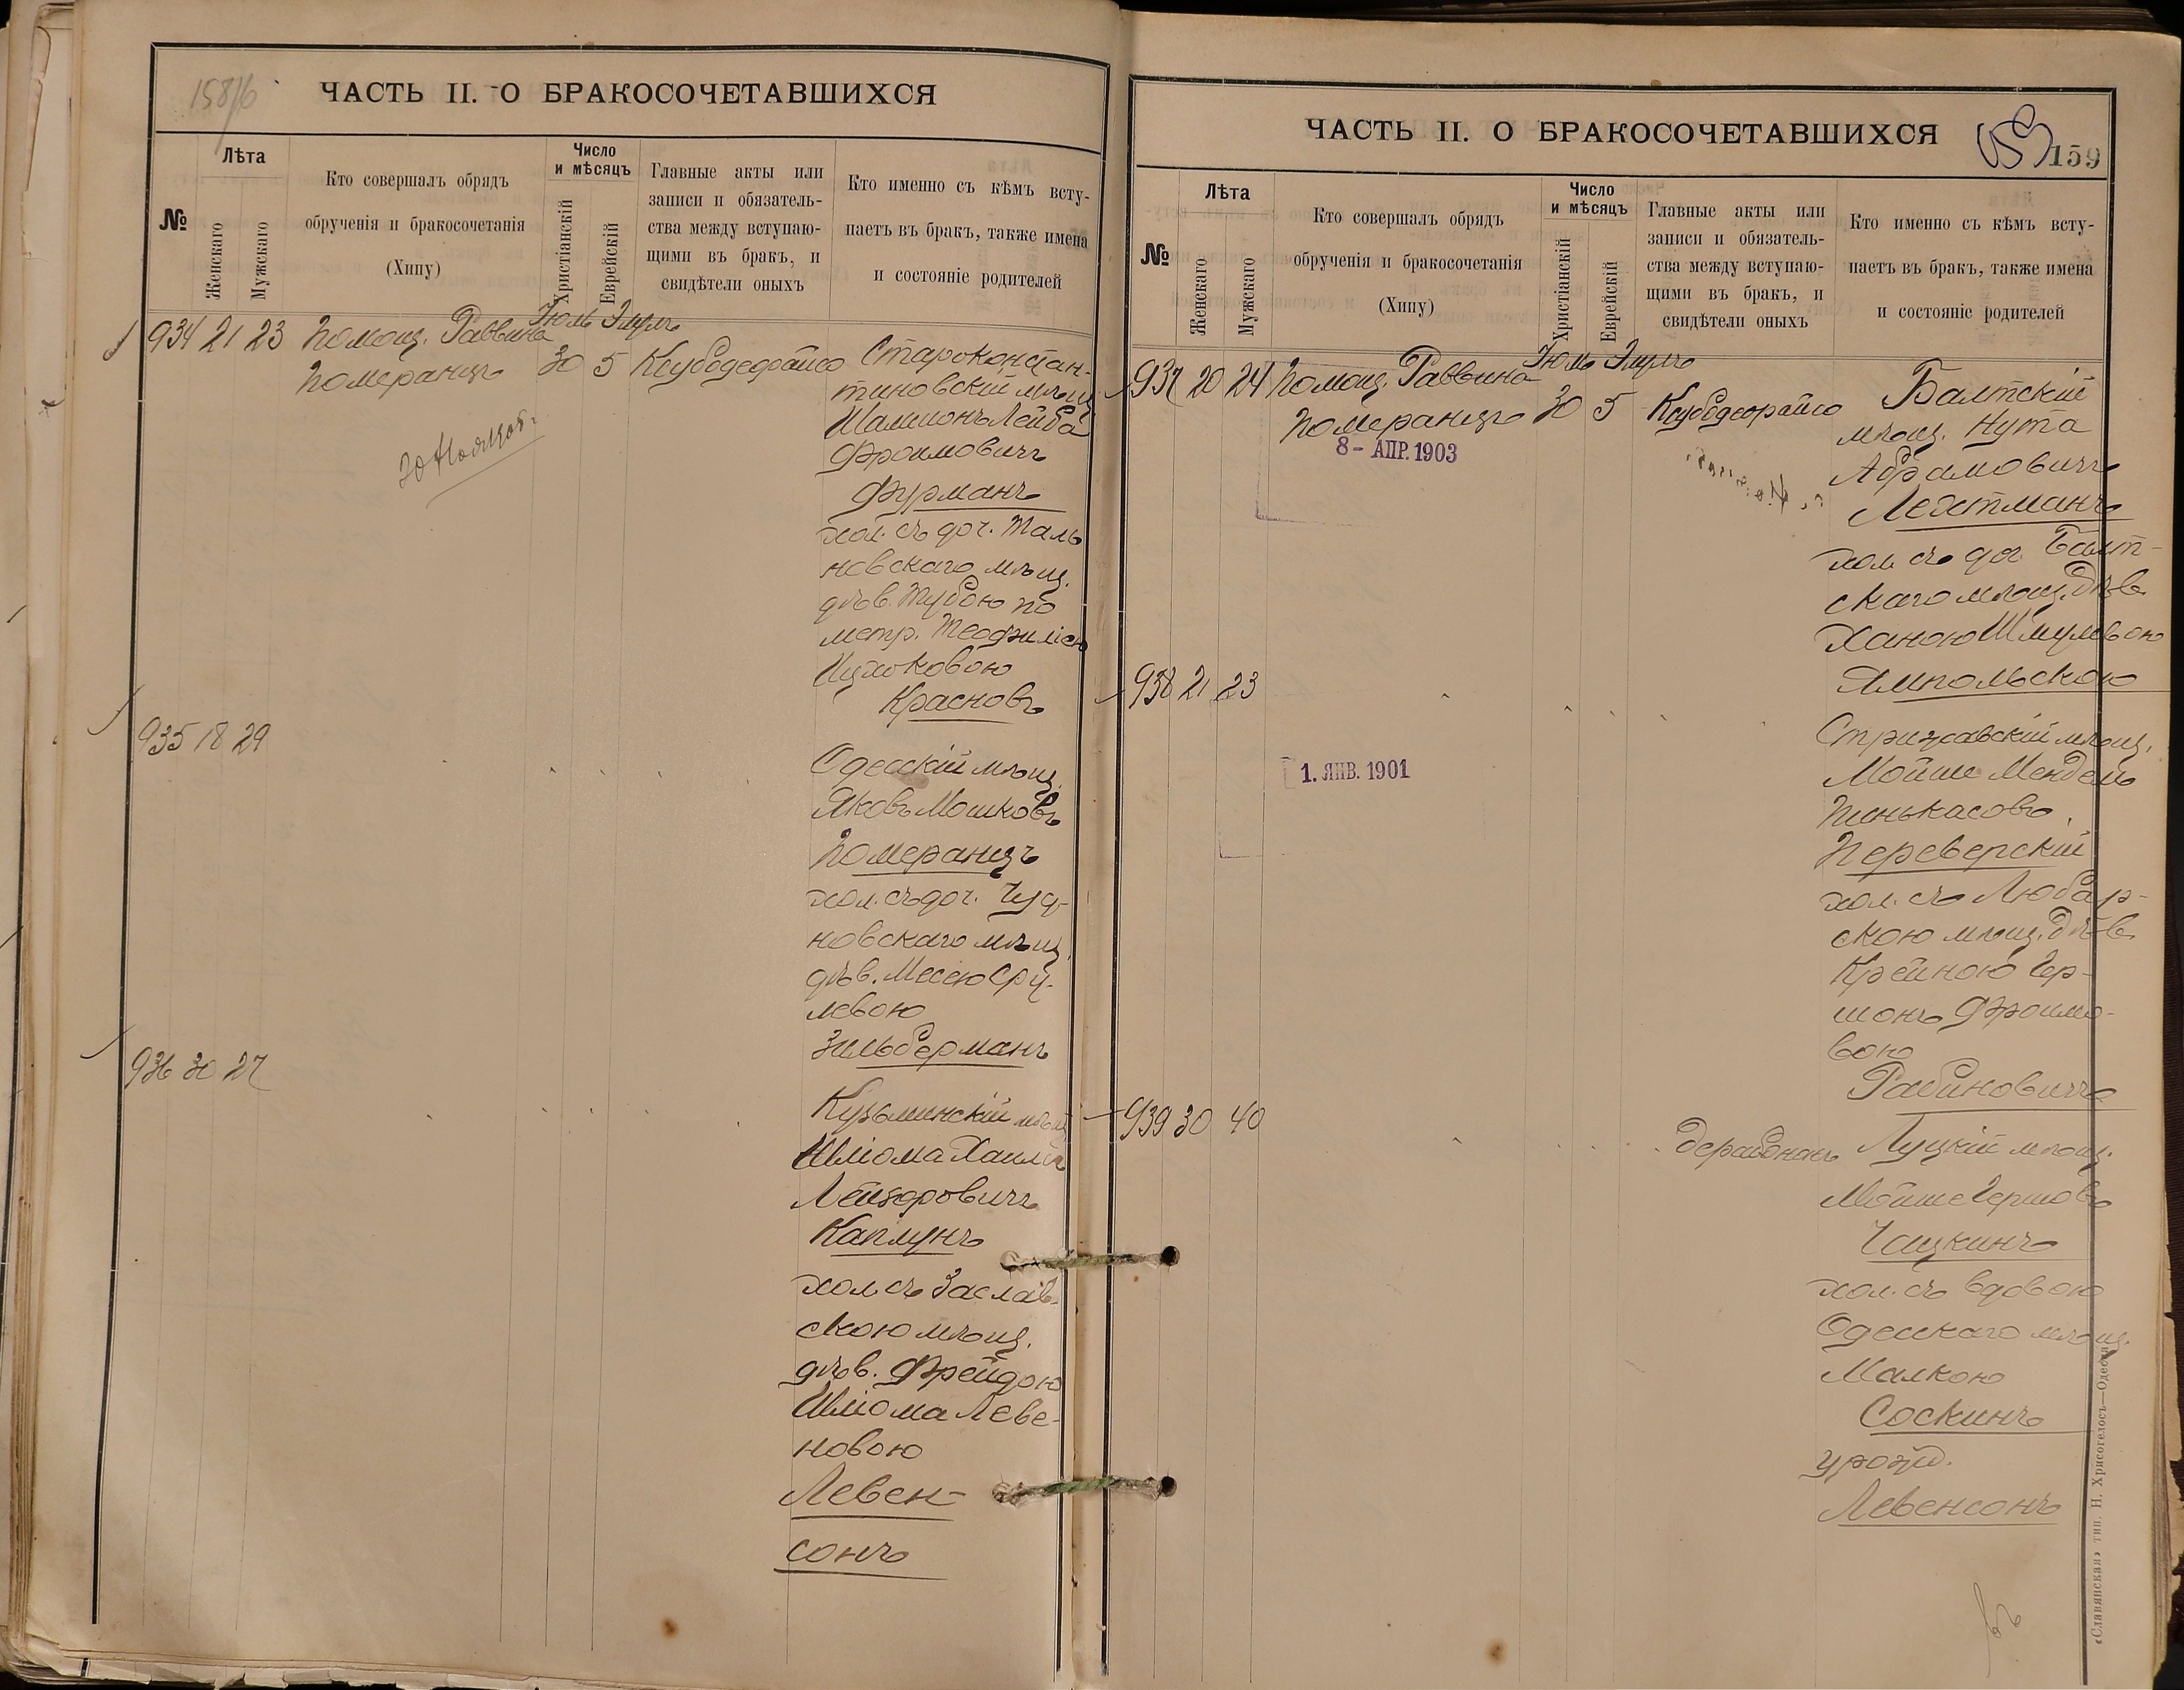 158/6
ЧАСТЬ II. О БРАКОСОЧЕТАВШИХСЯ
№
Лѣта
Женскаго
Мужскаго
Кто совершалъ обрядъ
обрученія и бракосочетанія
(Хипу)
Число
и мѣсяцъ
Христіанскій
Еврейскій
Главные акты или
записи и обязатель-
ства между вступаю-
щими въ бракъ, и
свидѣтели оныхъ
Кто именно съ кѣмъ всту-
паетъ въ бракъ, также имена
и состояніе родителей
934 21 23 Помощ. Раввина Іюль Элулъ
Померанцъ 30 5
Староконстан-
тиновскій мѣщ.
Шлиомъ Лейба
Фроимовичъ
Фурманъ
хол. съ доч. Таль
новскаго мѣщ.
дѣв. Тубою по
метр. Теофиліею
Ицковою
Красновъ
935 18 29
Одесскій мѣщ.
Яковъ Мошковъ
Померанцъ
хол. съ доч. Чуд-
новскаго мѣщ.
дѣв. Месею Сру-
левою
Зильберманъ
936 30 27
Кузьминскій мѣщ.
Шліома Хаимъ
Лейзоровичъ
Каплунъ
хол. съ Заслав-
скою мѣщ.
дѣв. Фрейдою
Шліома Леве-
новою
Левен-
сонъ
ЧАСТЬ II. О БРАКОСОЧЕТАВШИХСЯ
159
159
№
Лѣта
Женскаго
Мужскаго
Кто совершалъ обрядъ
обрученія и бракосочетанія
(Хипу)
Число
и мѣсяцъ
Христіанскій
Еврейскій
Главные акты или
записи и обязатель-
ства между вступаю-
щими въ бракъ, и
свидѣтели оныхъ
Кто именно съ кѣмъ всту-
паетъ въ бракъ, также имена
и состояніе родителей
937 20 24 Помощ. Раввина Іюль Элулъ
Померанцъ 30 5
8 - АПР. 1903
Балтскій
мѣщ. Нута
Абрамовичъ
Лехтманъ
хол. съ доч. Балт-
скаго мѣщ. дѣв.
Ханою Шмулевою
Ямпольскою
938 21 23
1. ЯНВ. 1901
Стрижавскій мѣщ.
Мойше Мендель
Пинькасовъ
Переверскій
хол. съ Любар-
скою мѣщ. дѣв.
Крейною Гер-
шонъ Фроимо-
вою
Рабиновичъ
939 30 40
Луцкій мѣщ.
Мойше Гершовъ
Чацкинъ
хол. съ вдовою
Одесскаго мѣщ.
Малкою
Соскинъ
урожд.
Левенсонъ
«Славянская» тип. Н. Хрисогелосъ—Одесса.